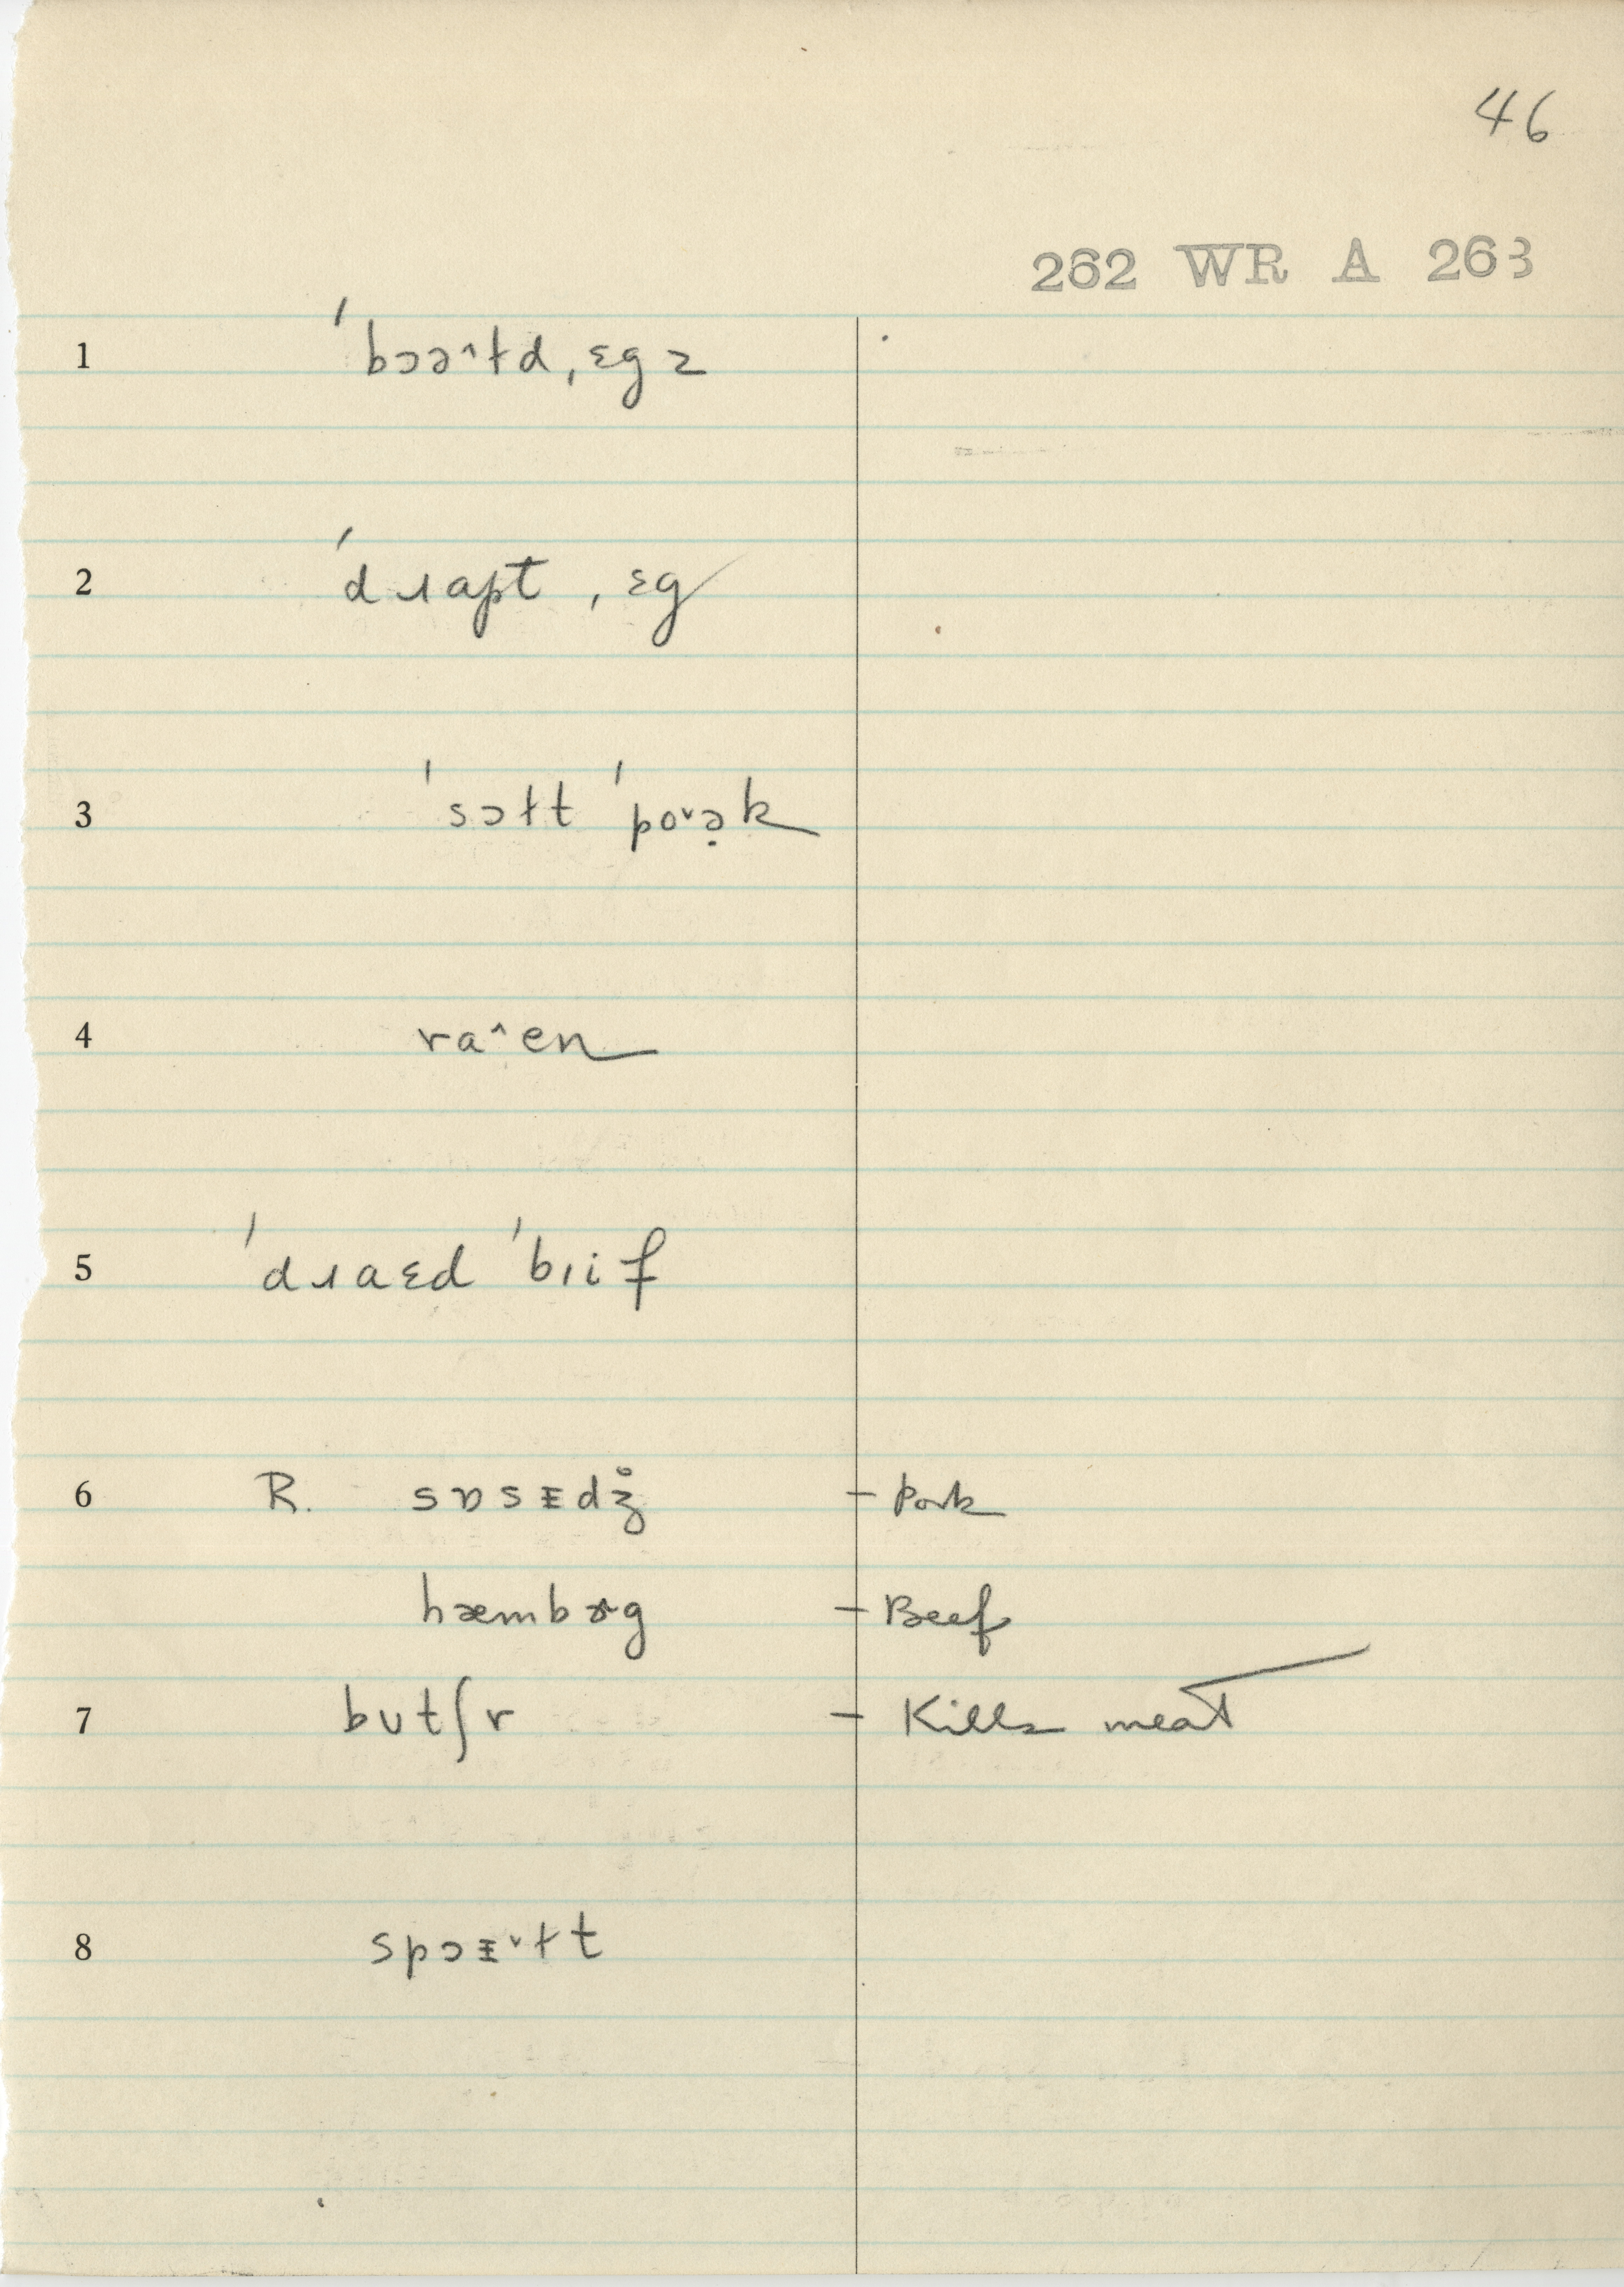 46
262 WR A 263
1 ˈbɔəˆɫd ˌɛgz
2 ˈdɹɑpt ˌɛg
3 ˈsɔɫt ˈpoˇə̣k
4 raˆen
5 ˈdɹaɛd ˈbɪif
6 R. sɒsᵻdʒ̊ – Pork
hæmbɚg – Beef
7 bʊtʃr – Kills meat
8 spɔᵻˇɫt